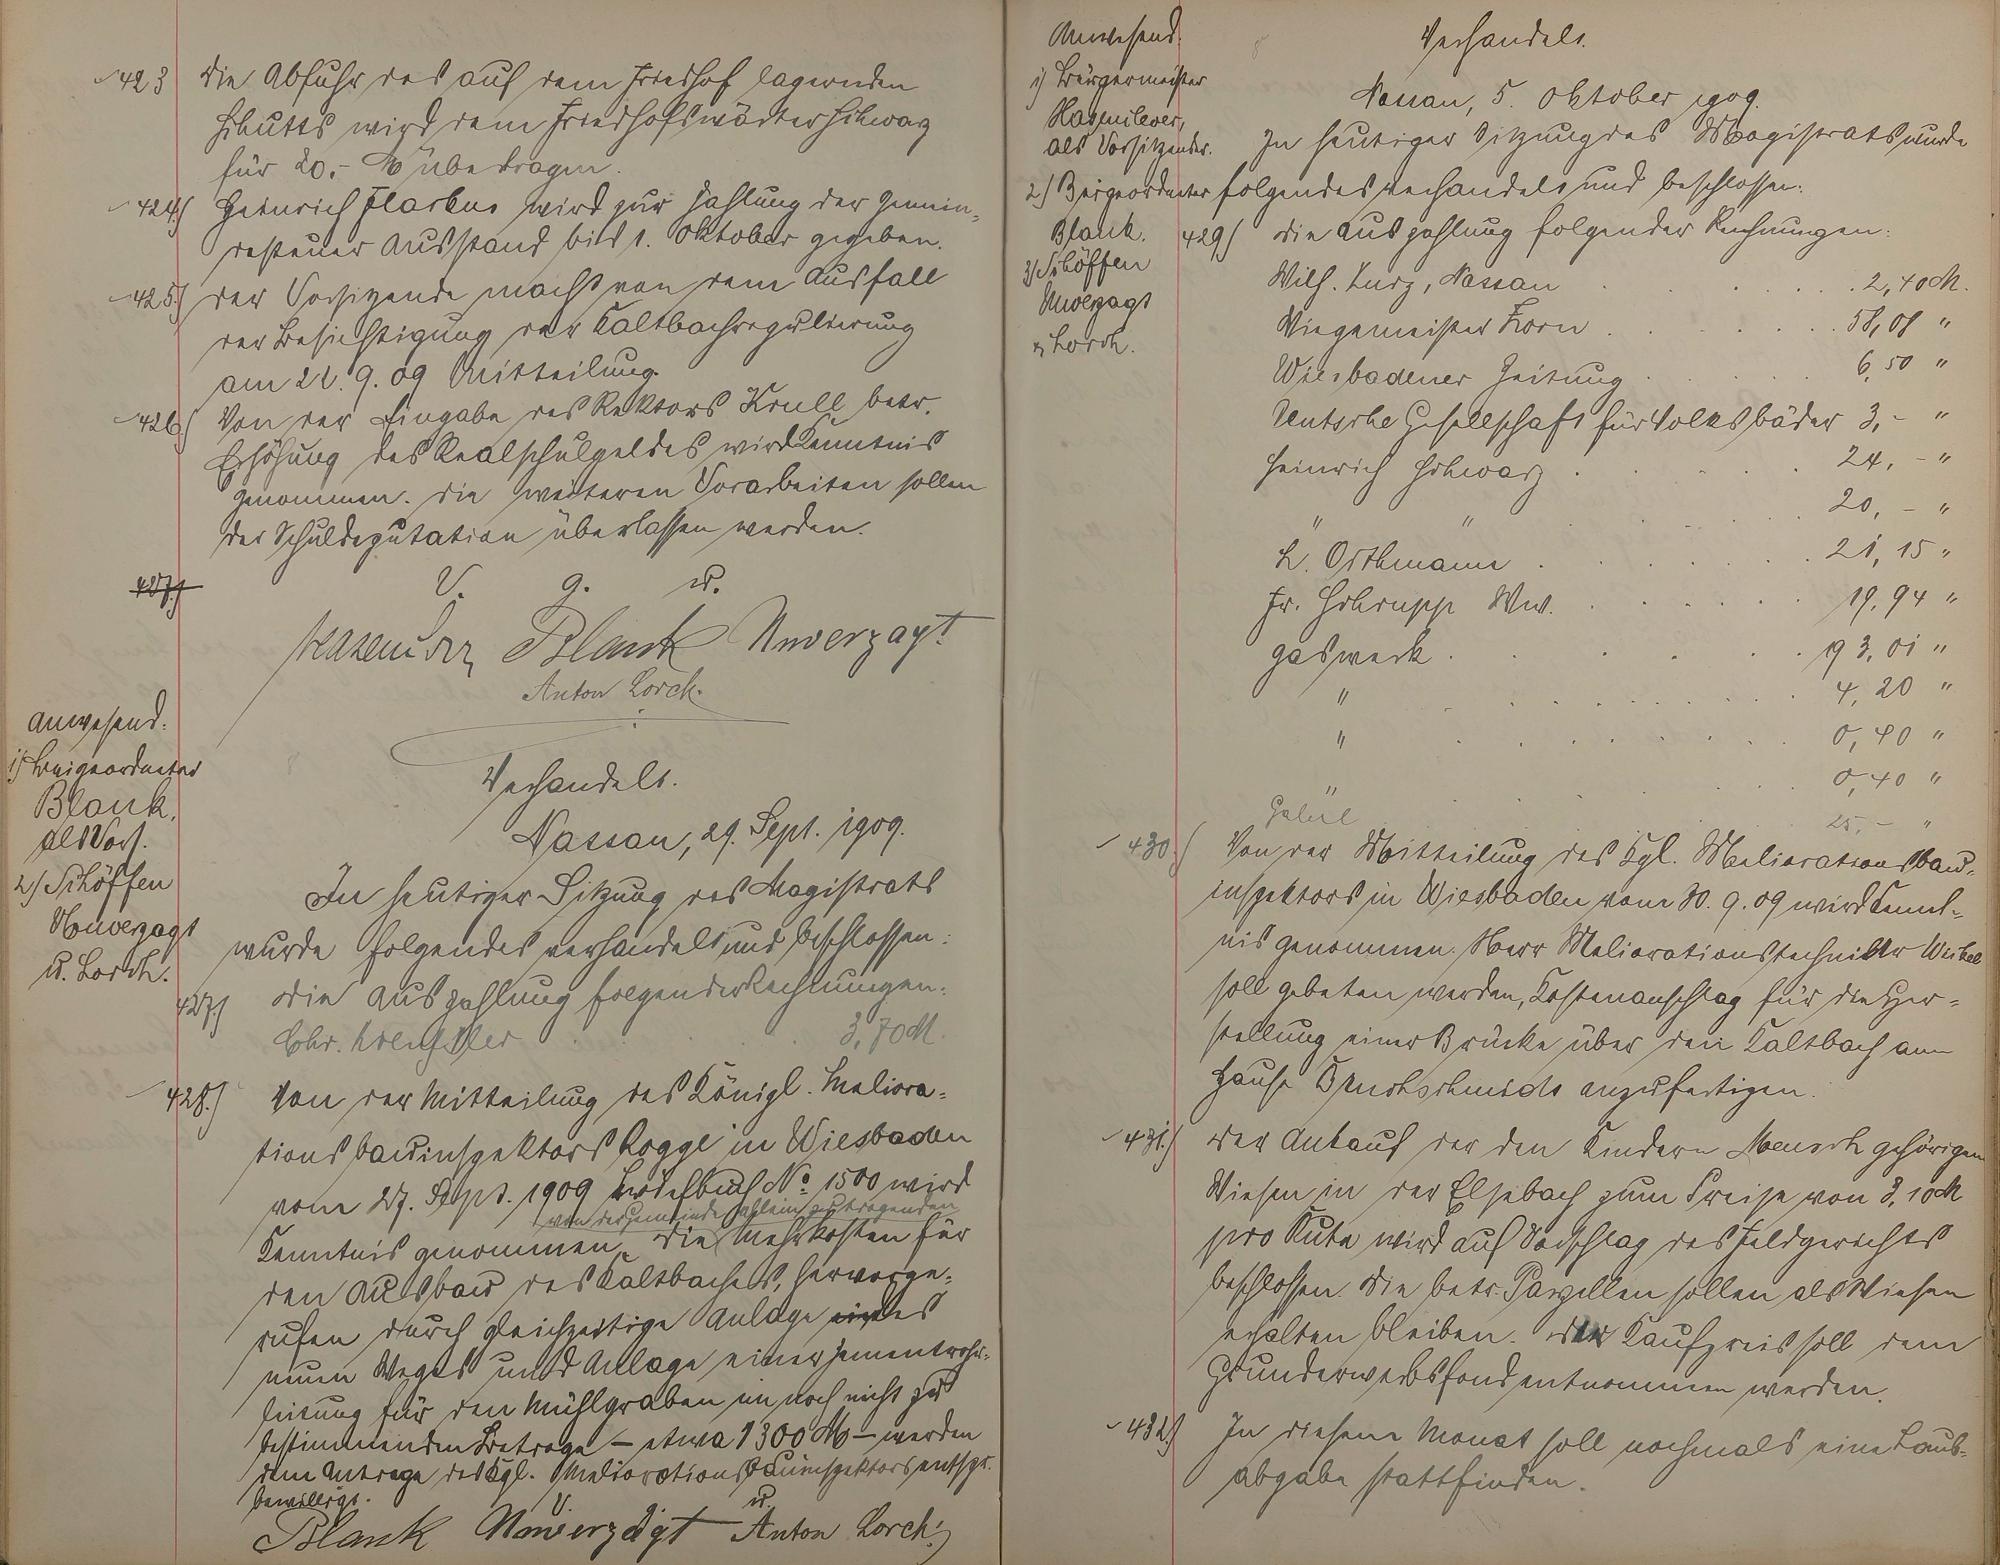 423 Die Abfuhr des auf dem Friedhof lagernden
Schutts wird dem Friedhofswärter Schwarz
für 20,- M übertragen.
424) Heinrich wird zur Zahlung der Gemein-
desteuer Ausstand bis 1. Oktober gegeben.
425) Der Vorsitzende macht von dem Ausfall
der Besichtigung der Kaltbachregulierung
am 21.9.09 Mitteilung.
426) Von der Eingabe des Rektors Krull betr.
Erhöhung des Realschulgeldes wird Kenntnis
genommen. Die weiteren Vorarbeiten sollen
der Schuldeputation überlassen werden.
427.)
V. g. u.
Hasenclever Blank Unverzagt
Anton Lorch.
Anwesend:
1) Beigeordneter
Blank,
als Vors.
2) Schöffen
Unverzagt
u. Lorch.
Verhandelt.
Nassau, 29. Sept. 1909.
In heutiger Sitzung des Magistrats
wurde folgendes verhandelt und beschlossen:
427) Die Auszahlung folgender Rechnungen:
Chr. 3,70 M.
428.) Von der Mitteilung des Königl. Meliora-
tionsbauinspektors Rogge in Wiesbaden
vom 27. Sept. 1909 Briefbuch No 1500 wird
von der Gemeinde allein zu tragenden
Kenntnis genommen. Die Mehrkosten für
den Ausbau des Kaltbaches, hervorge-
rufen durch gleichzeitige Anlage eines
neuen Weges und Anlage einer Zementrohr-
leitung für den Mühlgraben im noch nicht zu
bestimmenden Betrage – etwa 1300 M – werden
dem Antrage des Kgl. Meliorationsbauinspektors entspr.
bewilligt.
V. u.
Blank Unverzagt Anton Lorch.
Anwesend:
1) Bürgermeister
Hasenclever,
als Vorsitzender.
2.) Beigeordneter
Blank.
3) Schöffen
Unverzagt
u. Lorch.
Verhandelt.
Nassau, 5. Oktober 1909.
In heutiger Sitzung des Magistrats wurde
folgendes verhandelt und beschlossen:
429) Die Auszahlung folgender Rechnungen:
Wilh. Kurz, Nassau . . . . 2,40 M.
Wiegemeister Zorn . . . . 58,08 "
Wiesbadener Zeitung . . . . 6,50 "
Deutsche Gesellschaft für Volksbäder 3,- "
Heinrich Schwarz . . . . 24,- "
" " . . . . 20,- "
L. Orthmann . . . . 21,15 "
Fr. Schrupp Ww. . . . . 19,94 "
Gaswerk . . . . 93,01 "
" . . . . 4,20 "
" . . . . 0,40 "
" . . . . 0,40 "
25,- "
430.) Von der Mitteilung des Kgl. Meliorationsbau-
inspektors in Wiesbaden vom 30.9.09 wird Kennt-
nis genommen. Herr Meliorationstechniker Weikel
soll gebeten werden, Kostenanschlag für die Her-
stellung einer Brücke über den Kaltbach am
Hause anzufertigen.
431.) Der Ankauf der den Kindern Mensch gehörigen
Wiesen in der Elsebach zum Preise von 3,10 M
pro Rute wird auf Vorschlag des Feldgerichts
beschlossen. Die betr. Parzellen sollen als Wiesen
erhalten bleiben. Der Kaufpreis soll dem
Grunderwerbsfond entnommen werden.
432) In diesem Monat soll nochmals eine Laub-
abgabe stattfinden.